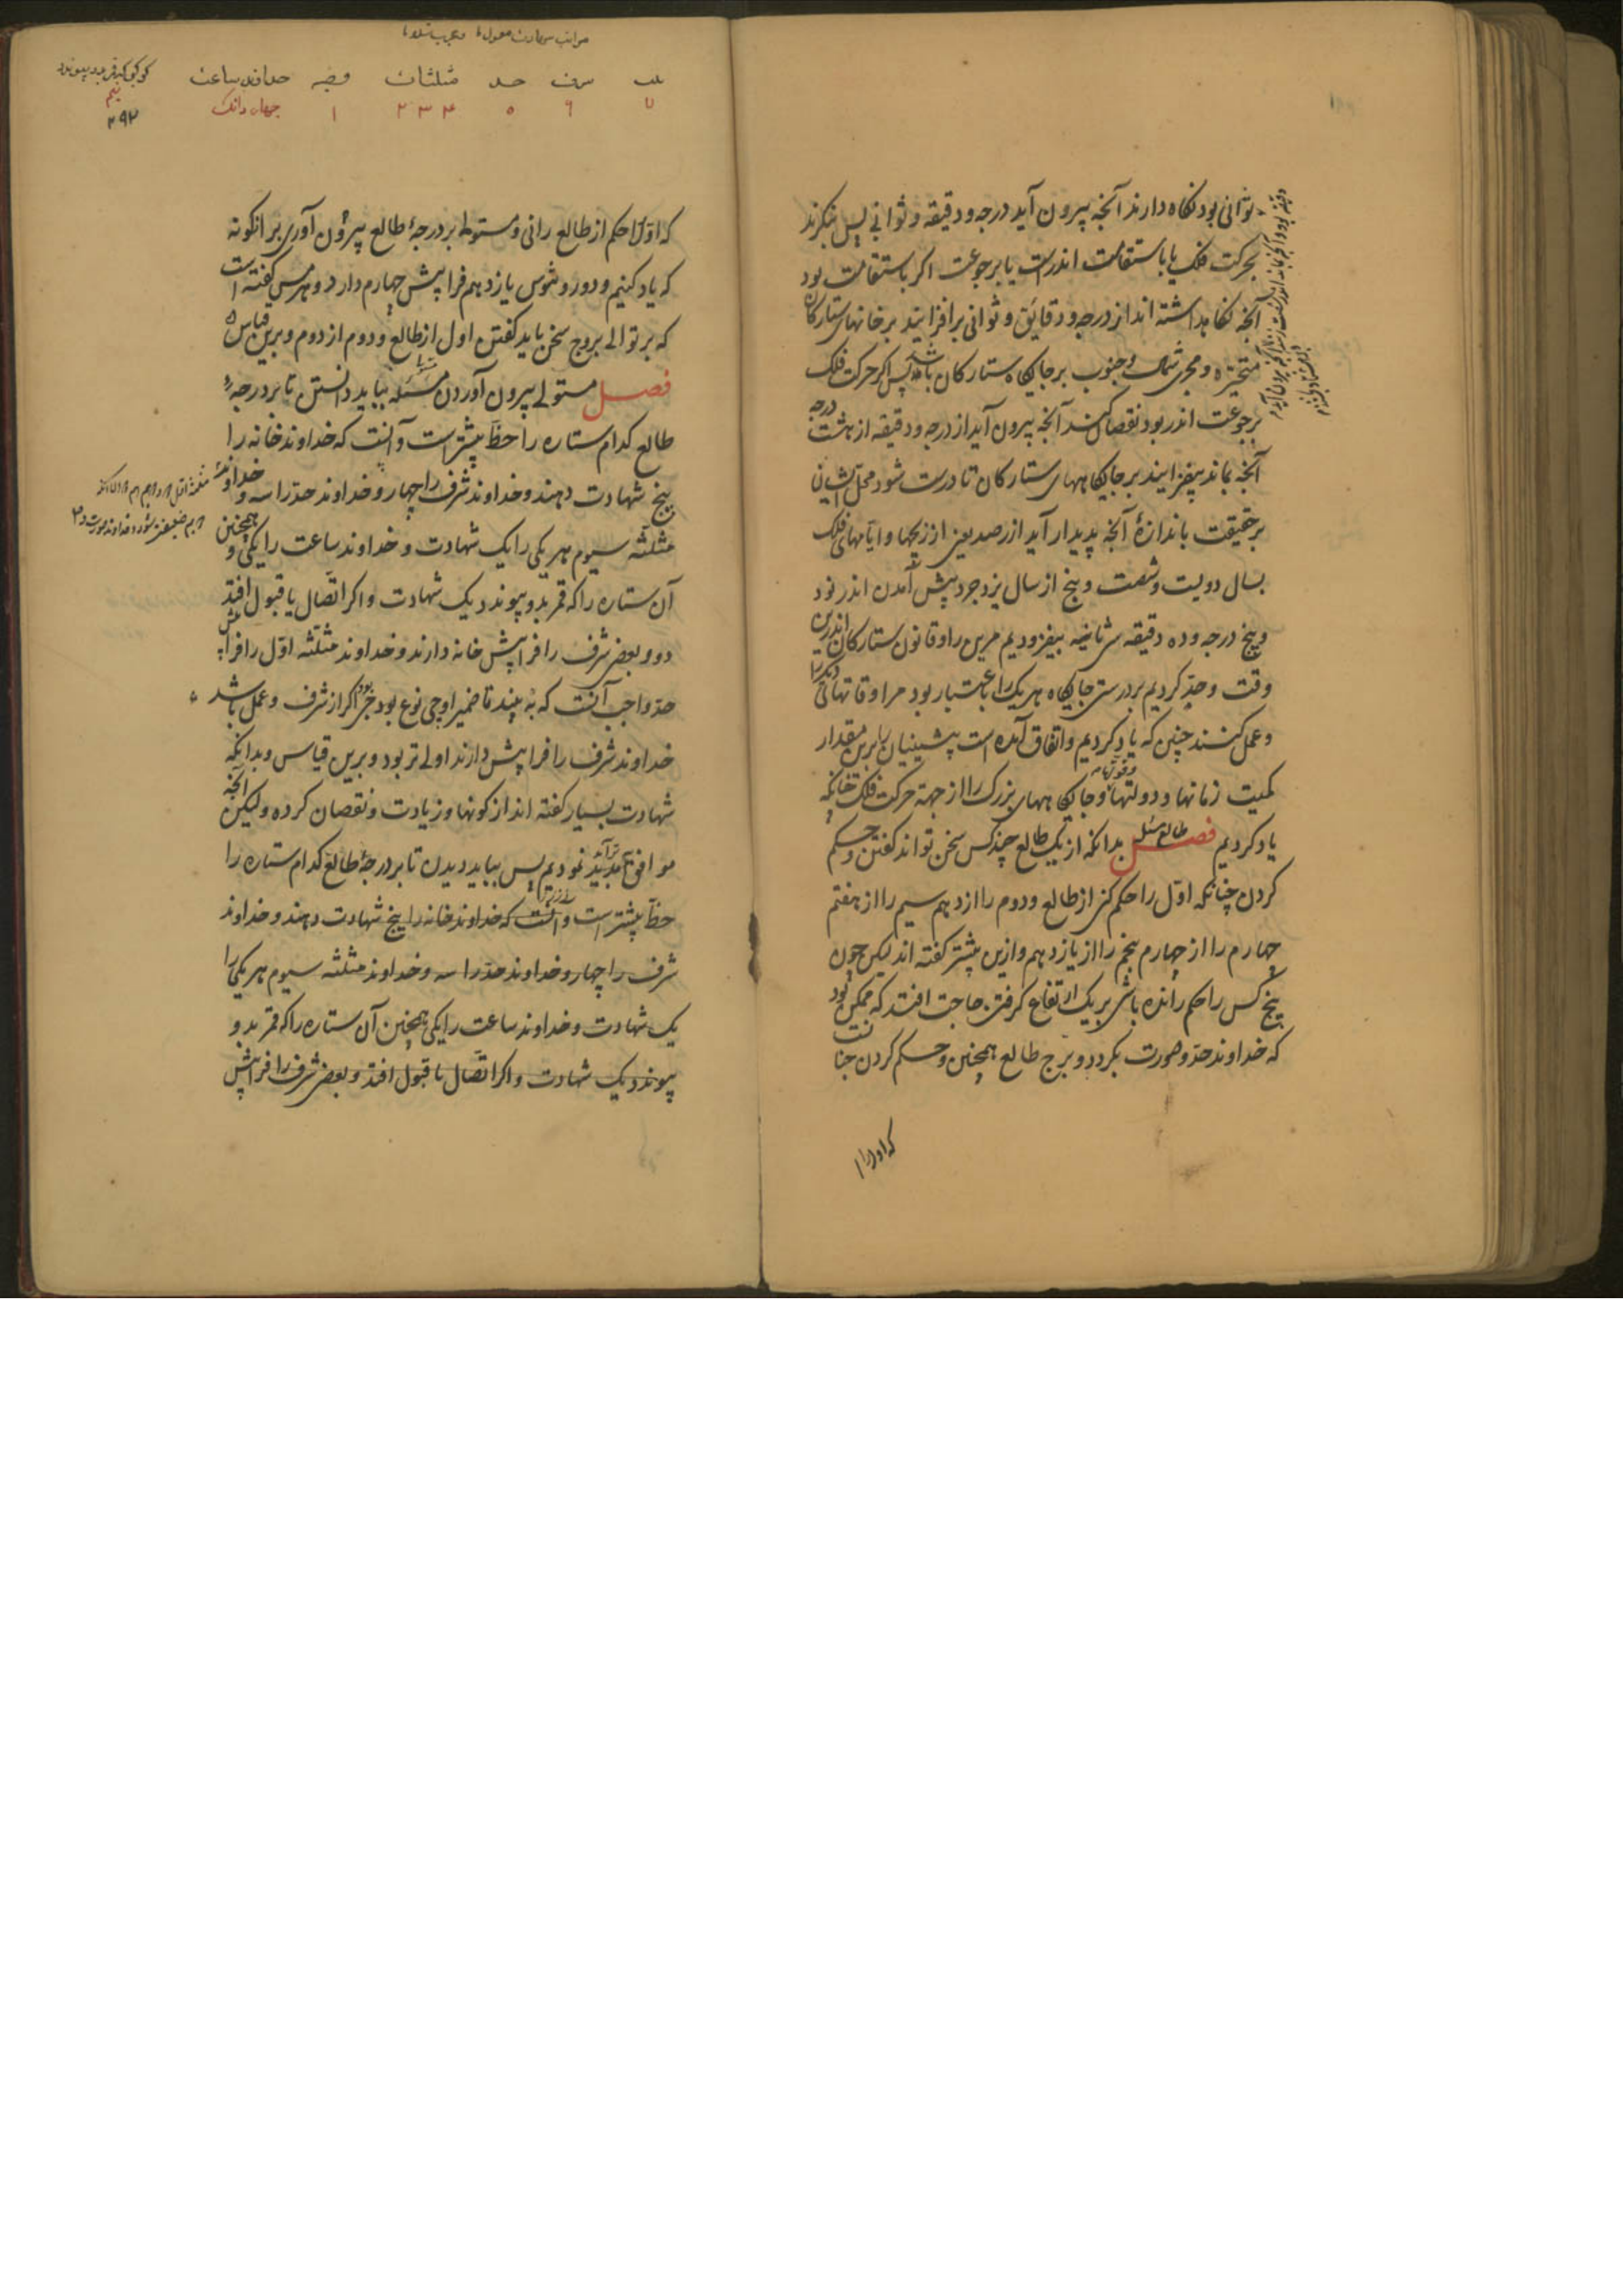 ثوانی بود نکاه دارند آنچه بیرون آید درجه و دقیقه و ثوانی پس بنکرند
بحرکت فلک یا باستقامت اندرست یا برجوعت اکر باستقامت بود
آنچه نکاه داشته اند از درجه و دقایق و ثوانی برافزایند بر خانهای ستارکان
متحیره و مجری شمال و جنوب بر جایکاه ستارکان باشد پس اکر حرکت فلک
برجوعت اندر بود نقصان کنند آنچه بیرون آید از درجه و دقیقه از هشت درجه
آنچه بماند بیفزایند بر جایکاههای ستارکان تا درست شود محل ایشان
برحقیقت باندازهٔ آنچه پدیدار آید از رصد یعنی از زیجها و
بسال دویست و شصت و پنج از سال یزدجرد پیش آمدن اندر بود
و پنج درجه و ده دقیقه ثانیه بیفزودیم مرین را و قانون ستارکان اندرین
وقت و جد کردیم بر درستی جایکاه هر یک را باعتبار بود مر اوقاتهای دیکر را
و عمل کنند چنین که یاد کردیم و اتفاق آمده است پیشینیان را برین مقدار
کمیت زمانها و دولتها و جایکاههای بزرک را از جهة حرکت فلک چنانکه
یاد کردیم فصل بدانکه از یک طالع چند کس سخن تواند کفتن و حکم
طالع مسئله
کردن چنانکه اول را حکم کنی از طالع و دوم را از دهم سیم را از هفتم
چهارم را از چهارم پنجم را از یازدهم و ازین پیشتر کفته اند لیکن چون
پنج کس را حکم رانده باشی بر یک ارتفاع کرفتن حاجت افتد که ممکن بود
که خداوند حد و صورت بکردد و برج طالع همچنین و حکم کردن چنانست
که اول را
مراتب
شرف حد مثلثات وجه خداوند ساعت کوکبی که قمر بدو پیوندد
۷ ۶ ۵ ۴ ۳ ۲ ۱ چهار دانک نیم
۲۹۲
که اول احکم از طالع رانی و مستولی بر درجهٔ طالع بیرون آوری بر آنکونه
که یاد کنیم و دوروثیوس یازدهم فرا پیش چهارم دارد و هرمس کفته است
که بر توالی بروج سخن باید کفتن اول از طالع و دوم از دوم و برین قیاس
فصل مستولی بیرون آوردن مسئله بباید دانستن تا بر درجهٔ
طالع کدام ستاره را حظ بیشترست و آنست که خداوند خانه را
پنج شهادت دهند و خداوند شرف را چهار و خداوند حد را سه و خداوند
مثلثه سیوم هر یکی را یک شهادت و خداوند ساعت را یکی و همچنین
آن ستاره را که قمر بدو پیوندد یک شهادت و اکر اتصال با قبول افتد
دو و بعضی شرف را فرا پیش خانه دارند و خداوند مثلثه اول را فرا پیش
حد و واجب آنست که ببیند تا ضمیر او چی نوع بود اکر از شرف و عمل باشد
خداوند شرف را فرا پیش دارند اولی تر بود و برین قیاس و بدانکه
شهادت بسیار کفته اند از کونها و زیادت و نقصان کرده ولیکن آنچه
موافق نمودیم پس بباید دیدن تا بر درجهٔ طالع کدام ستاره را
حظ بیشترست و آنست که خداوند خانه را پنج شهادت دهند و خداوند
شرف را چهار و خداوند حد را سه و خداوند مثلثه سیوم هر یکی را
یک شهادت و خداوند ساعت را یکی همچنین آن ستاره را که قمر بدو
پیوندد یک شهادت و اکر اتصال با قبول افتد و بعضی شرف را فرا پیش